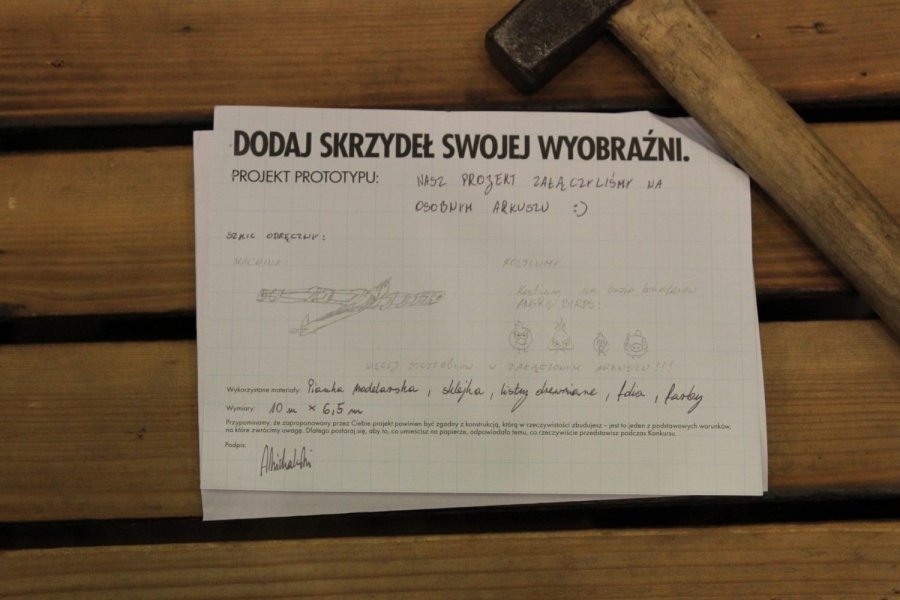 DODAJ SKRZYDEŁ SWOJEJ WYOBRAŹNI.
PROJEKT PROTOTYPU: NASZ PROJEKT ZAŁĄCZYLIŚMY NA
OSOBNYM ARKUSZU :)
SZKIC ODRĘCZNY:
MACHINA: KOSTIUMY:
ANGRY BIRDS:
WIĘCEJ SZCZEGÓŁÓW W ZAŁĄCZONYM ARKUSZU!!!
Wykorzystane materiały: Pianka modelarska, sklejka, listwy drewniane, folia, farby
Wymiary: 10 m × 6,5 m
Przypominamy, że zaproponowany przez Ciebie projekt powinien być zgodny z konstrukcją, którą w rzeczywistości zbudujesz – jest to jeden z podstawowych warunków,
na które zwrócimy uwagę. Dlatego postaraj się, aby to, co umieścisz na papierze, odpowiadało temu, co rzeczywiście przedstawisz podczas Konkursu.
Podpis: